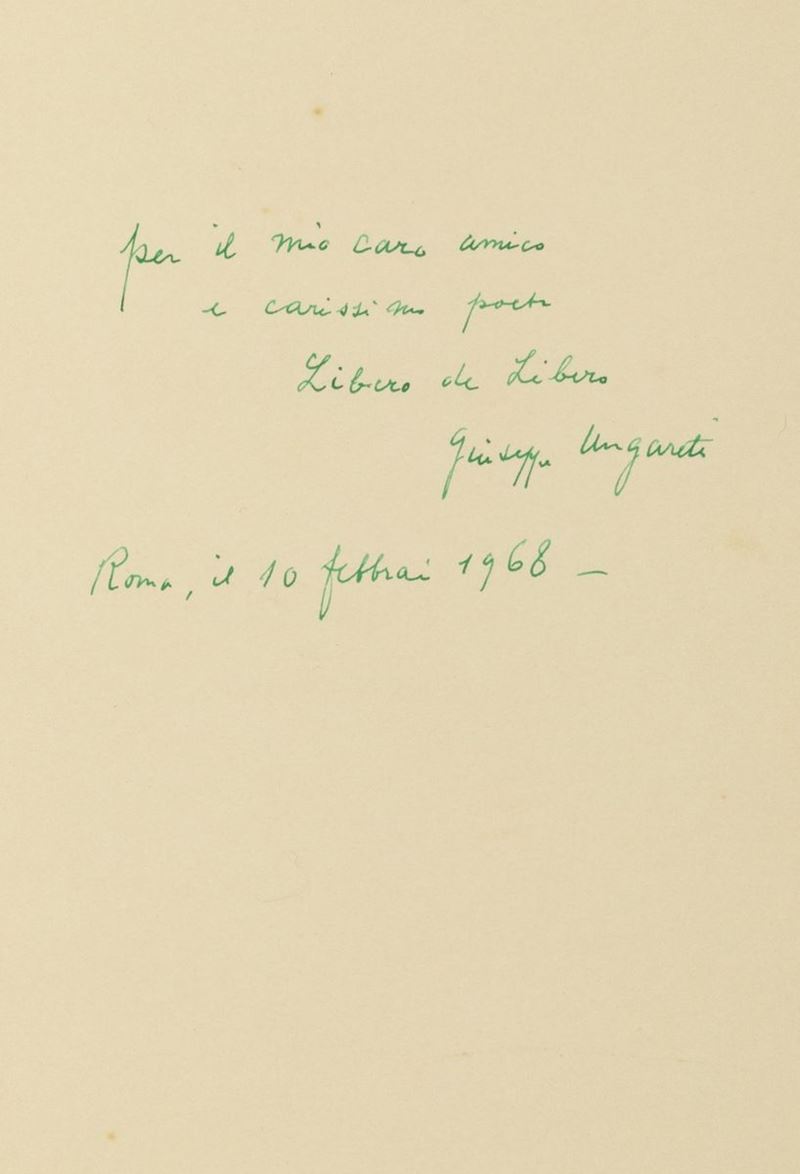 per il mio caro amico
e carissimo poeta
Libero de Libero
Giuseppe Ungaretti
Roma, il 10 febbraio 1968 —